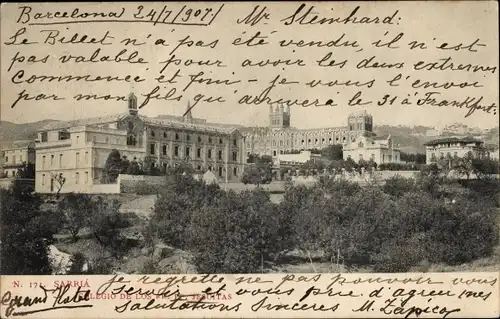 Barcelona 24/7/907/ Mr Steinhard:
Le Billet n'a pas été vendu, il n'est
pas valable pour avoir les deux extremes
commence et fini - je vous l'envoi
par mon fils qu'arrivera le 31 à Frankfort.
N. 171. SARRIÁ
COLEGIO DE LOS PP. JESUITAS
Grand Hotel
Je regrette ne pas pouvoir vous
servir et vous prie d'agreer mes
salutations Sinceres M. Zapico